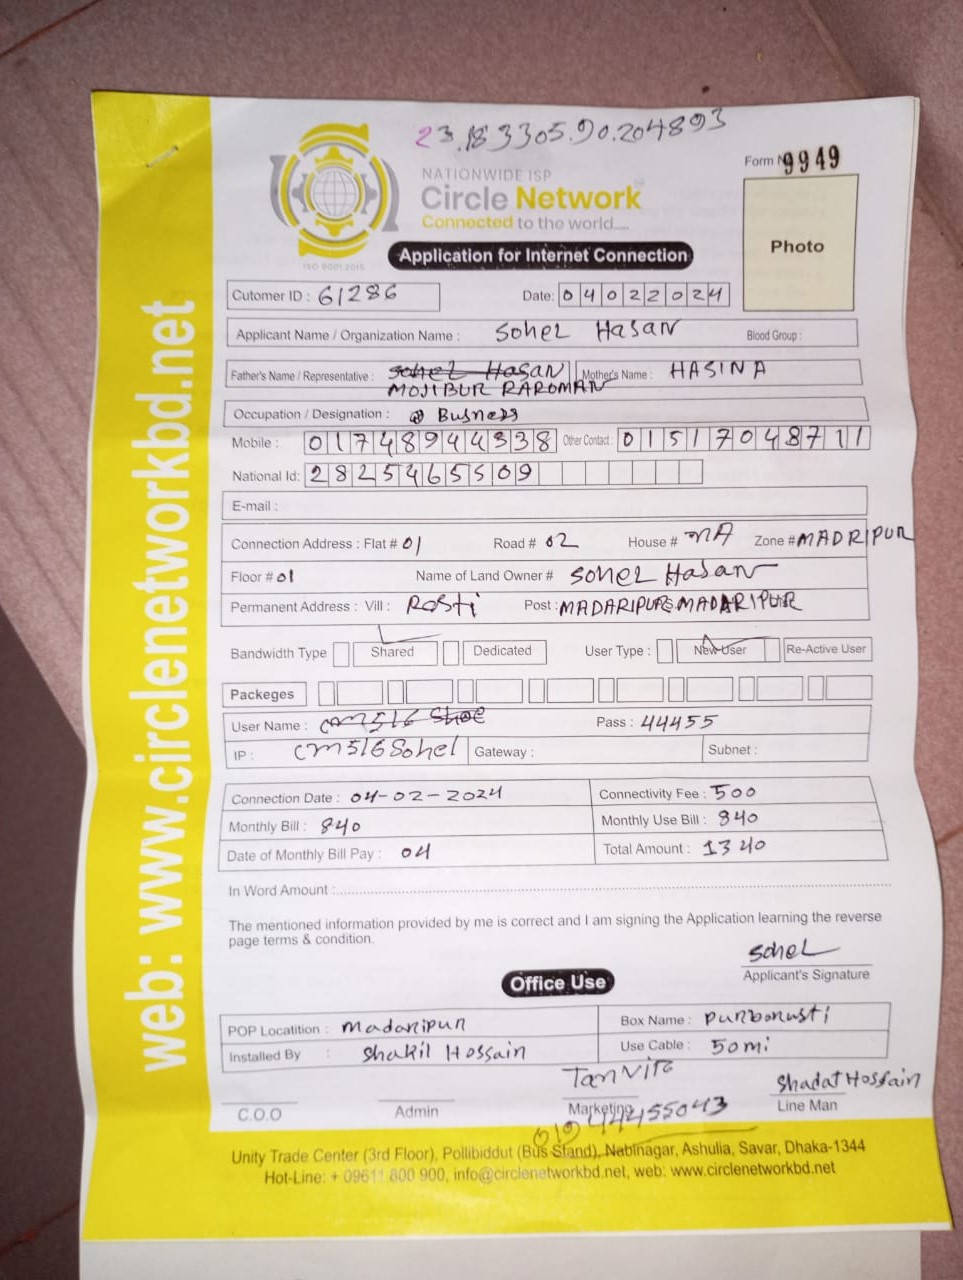 23.183305.90.204893
Form No 9949
NATIONWIDE ISP
Circle Network
Connected to the world....
ISO 9001:2015
Application for Internet Connection
Photo
Cutomer ID : 61286 Date: 04022024
Applicant Name / Organization Name : Sohel Hasan Blood Group :
Father's Name / Representative : Sohel Hasan Mother's Name : HASINA
MOJIBUR RAROMAN
Occupation / Designation : Busness
Mobile : 01748944338 Other Contact : 01517048711
National Id: 2825465509
E-mail :
Connection Address : Flat # 01 Road # 02 House # NA Zone # MADRIPUR
Floor # 01 Name of Land Owner # Sohel Hasan
Permanent Address : Vill : Rosti Post : MADARIPUR MADARIPUR
Bandwidth Type Shared Dedicated User Type : New User Re-Active User
Packeges
User Name : cm516 Shoe Pass : 44455
IP : cm516Sohel Gateway : Subnet :
Connection Date : 04-02-2024 Connectivity Fee : 500
Monthly Bill : 840 Monthly Use Bill : 840
Date of Monthly Bill Pay : 04 Total Amount : 1340
In Word Amount :
The mentioned information provided by me is correct and I am signing the Application learning the reverse
page terms & condition.
Sohel
Applicant's Signature
Office Use
POP Locatition : Madaripur Box Name : Purborasti
Installed By : Shakil Hossain Use Cable : 50mi
Tanvir Shadat Hossain
C.O.O Admin Marketing Line Man
01944455043
Unity Trade Center (3rd Floor), Pollibiddut (Bus Stand), Nabinagar, Ashulia, Savar, Dhaka-1344
Hot-Line: + 09611 800 900, info@circlenetworkbd.net, web: www.circlenetworkbd.net
web: www.circlenetworkbd.net